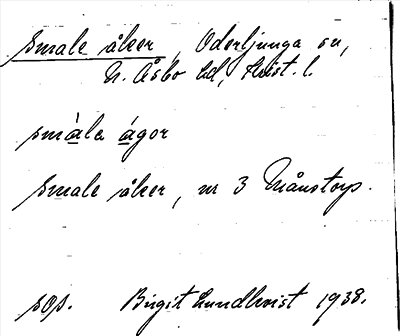 Smale åker, Oderljunga sn,
N. Åsbo hd, Krist. l.
smàla ágor
Smale åker, nr 3 Månstorp.
sop. Birgit Lundkvist 1938.